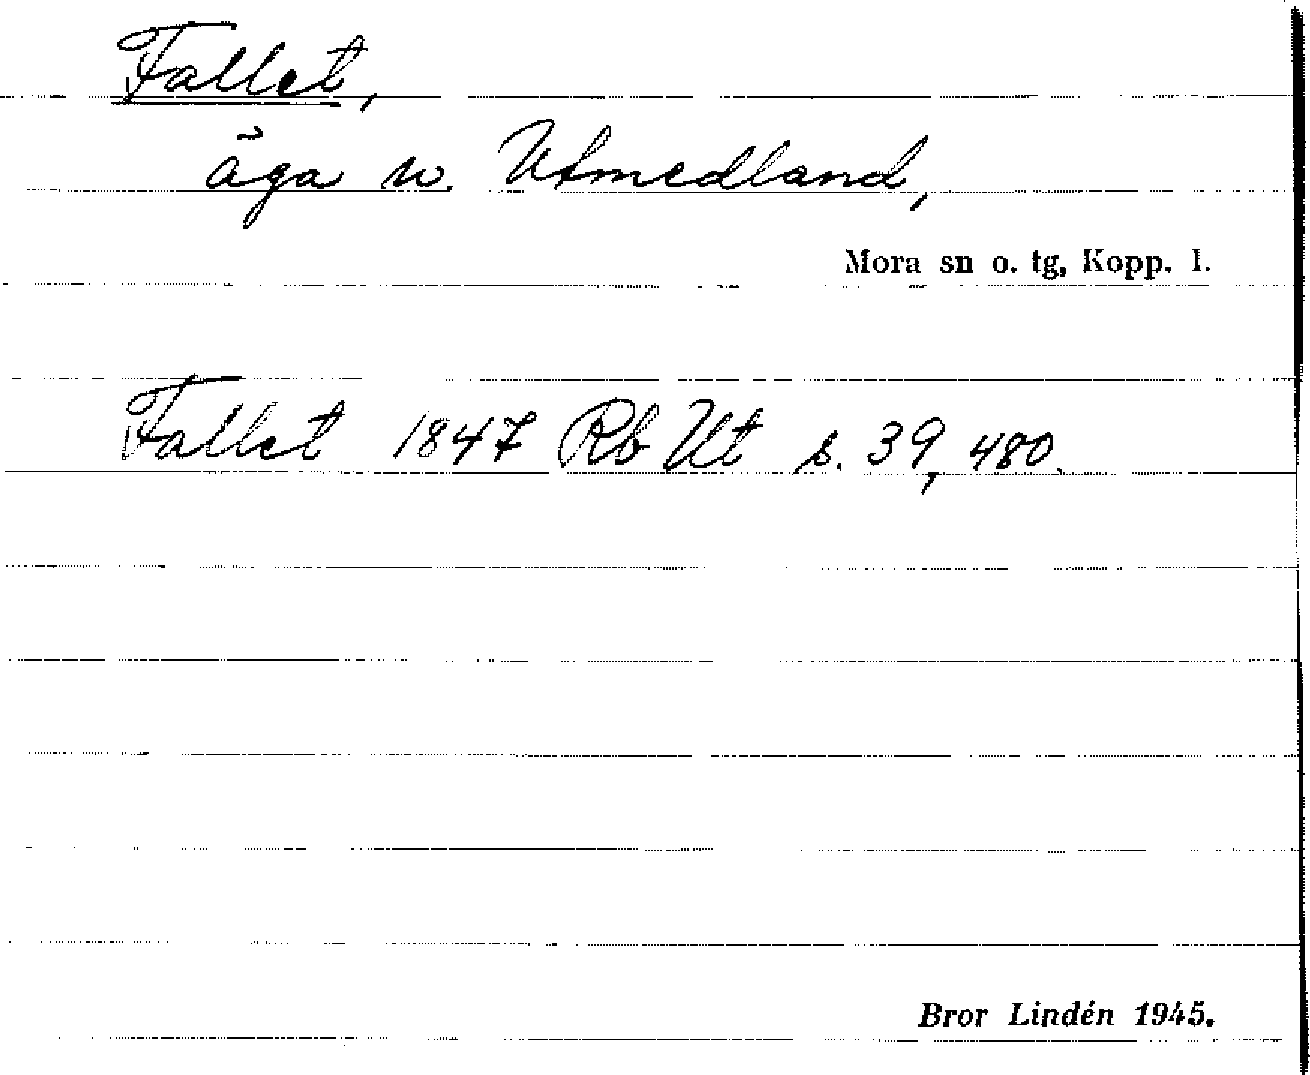 Fallet,
äga u. Utmedland,
Mora sn o. tg, Kopp. l.
Fallet 1847 Rb Ut s. 39, 480.
Bror Lindén 1945.